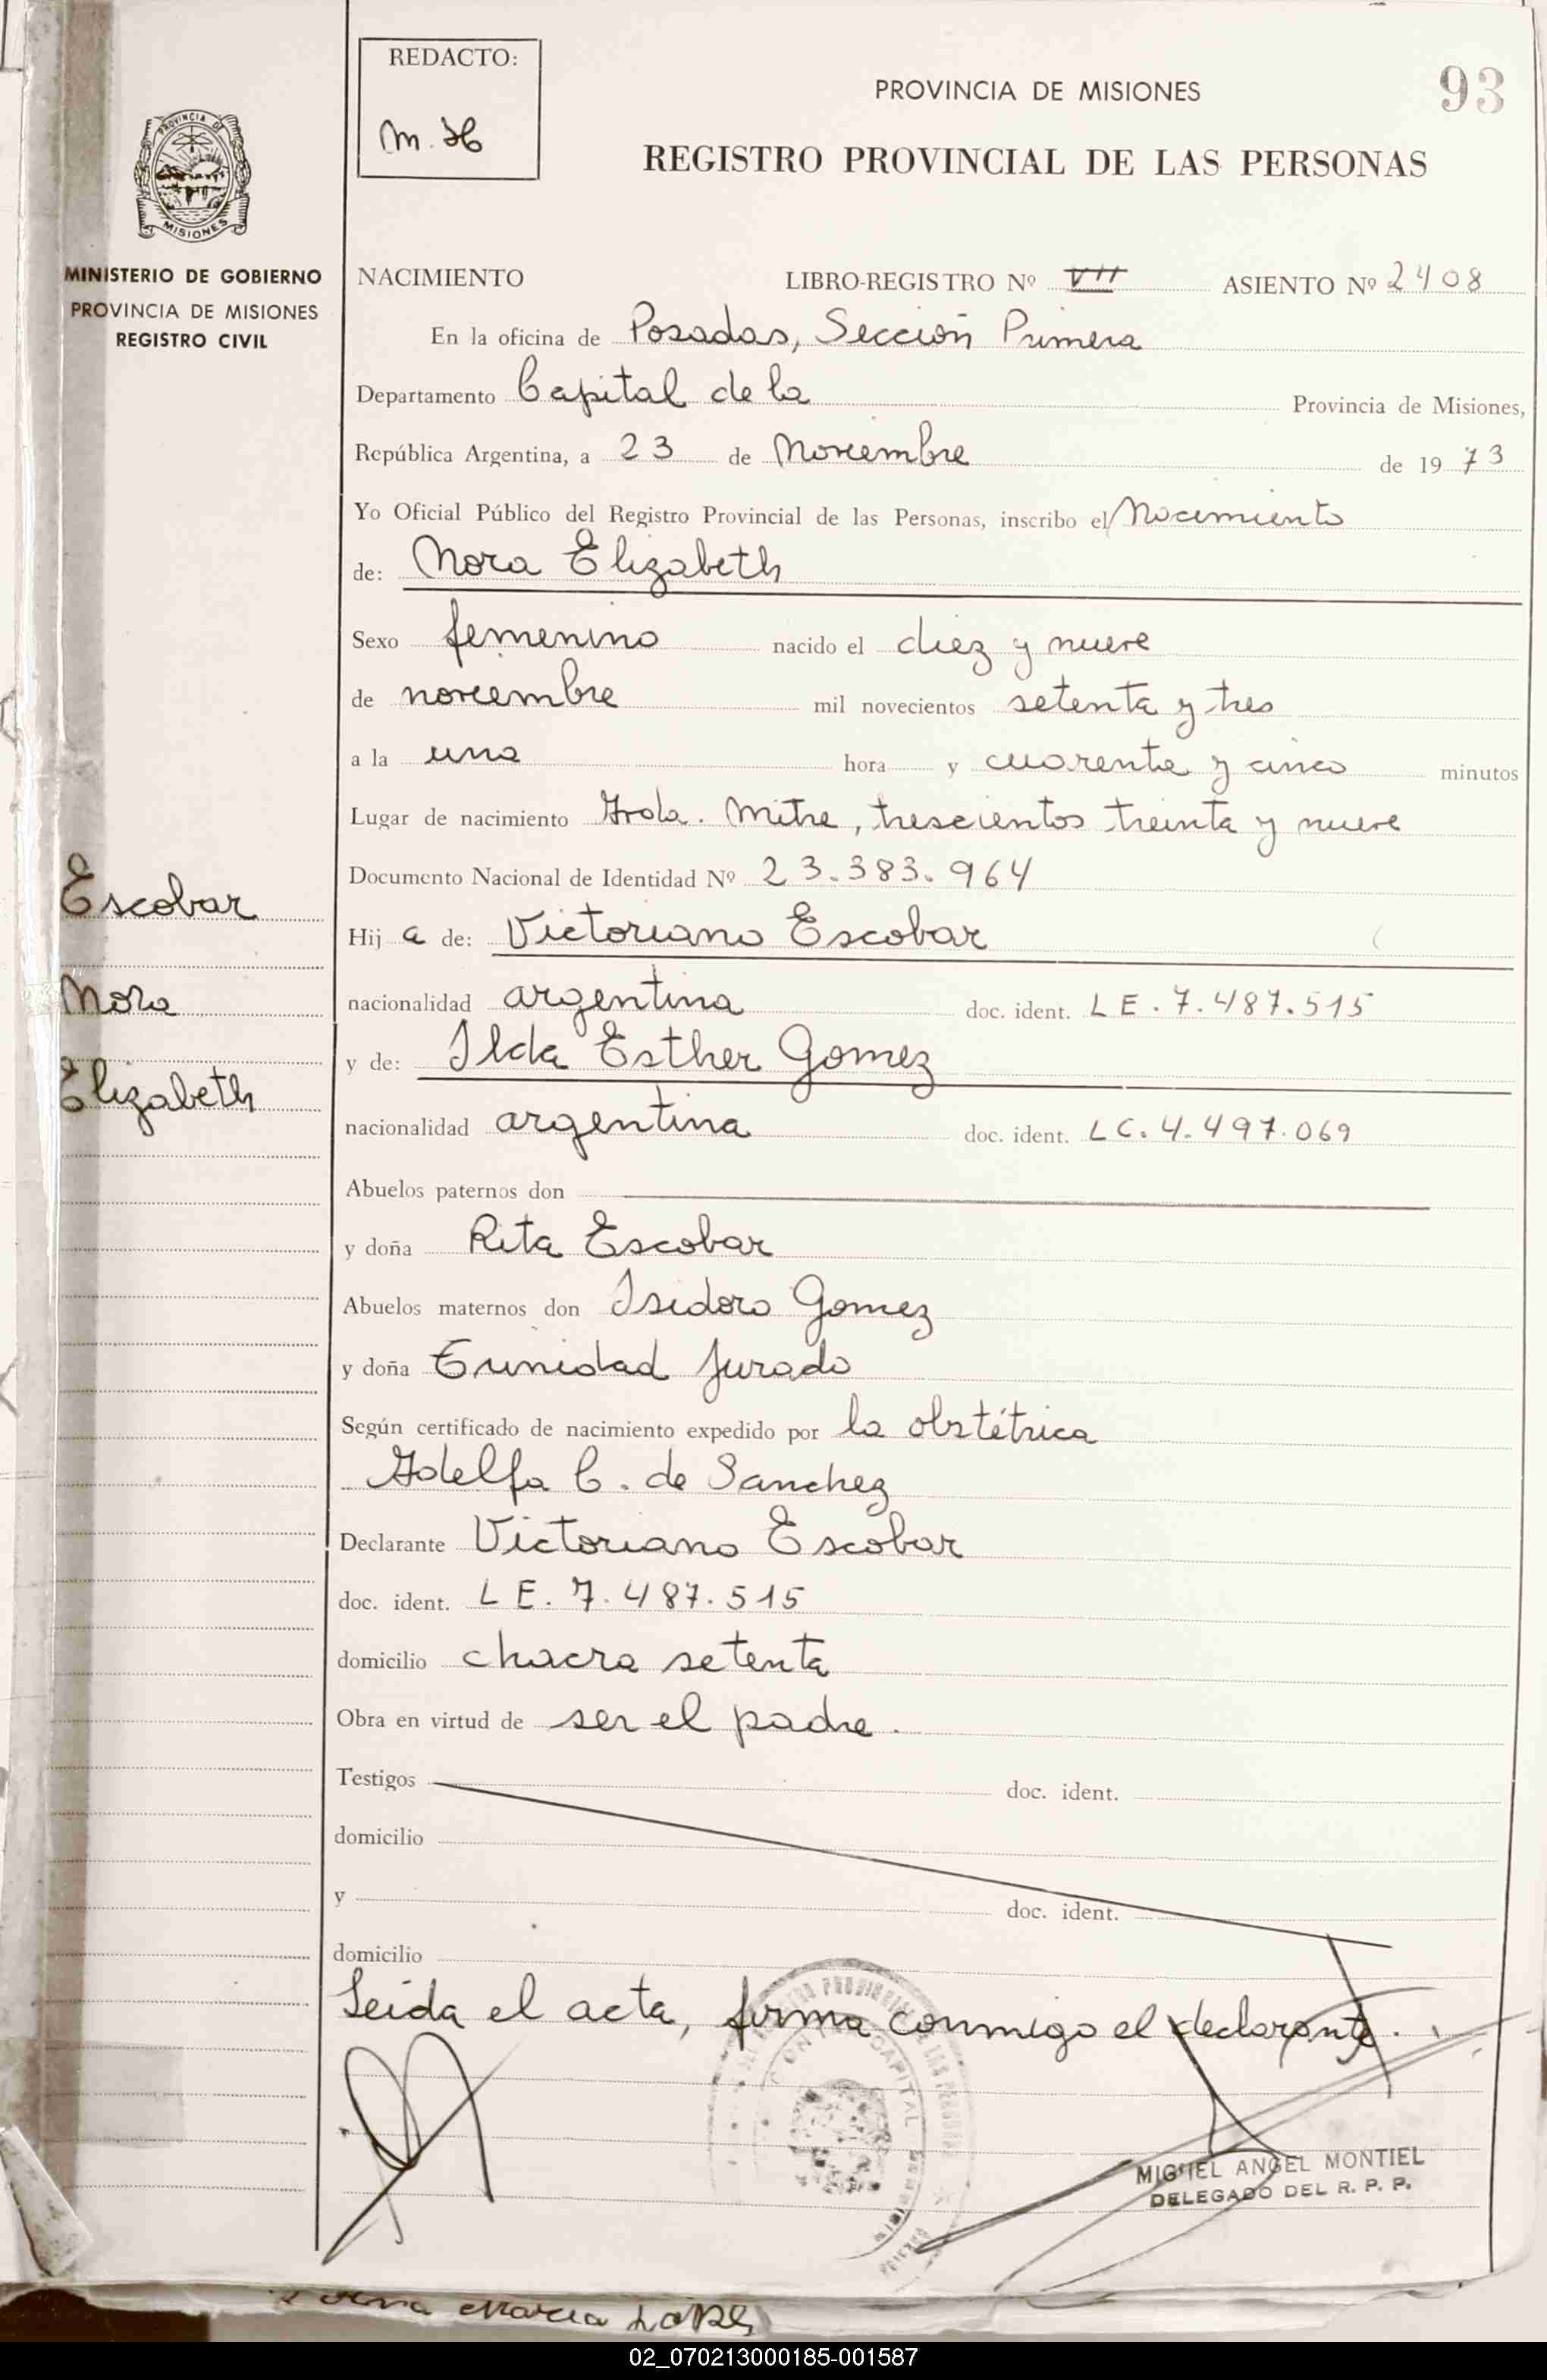 REDACTO:
M. H
PROVINCIA DE MISIONES
93
REGISTRO PROVINCIAL DE LAS PERSONAS
PROVINCIA DE
MISIONES
MINISTERIO DE GOBIERNO
PROVINCIA DE MISIONES
REGISTRO CIVIL
NACIMIENTO LIBRO-REGISTRO Nº VII ASIENTO Nº 2408
En la oficina de Posadas, Sección Primera
Departamento Capital de la Provincia de Misiones,
República Argentina, a 23 de Noviembre de 1973
Yo Oficial Público del Registro Provincial de las Personas, inscribo el Nacimiento
de: Nora Elizabeth
Sexo femenino nacido el diez y nueve
de noviembre mil novecientos setenta y tres
a la una hora y cuarenta y cinco minutos
Lugar de nacimiento Avda. Mitre, trescientos treinta y nueve
Documento Nacional de Identidad Nº 23.383.964
Escobar
Hij a de: Victoriano Escobar
Nora
nacionalidad argentina doc. ident. LE. 7.487.515
y de: Ilda Esther Gomez
Elizabeth
nacionalidad argentina doc. ident. LC. 4.497.069
Abuelos paternos don
y doña Rita Escobar
Abuelos maternos don Isidoro Gomez
y doña Jurado
Según certificado de nacimiento expedido por la obstétrica
Adelfa C. de Sanchez
Declarante Victoriano Escobar
doc. ident. LE. 7.487.515
domicilio chacra setenta
Obra en virtud de ser el padre.
Testigos doc. ident.
domicilio
y doc. ident.
domicilio
Leida el acta, firma conmigo el declarante.
CAPITAL
MIGUEL ANGEL MONTIEL
DELEGADO DEL R. P. P.
02_070213000185-001587